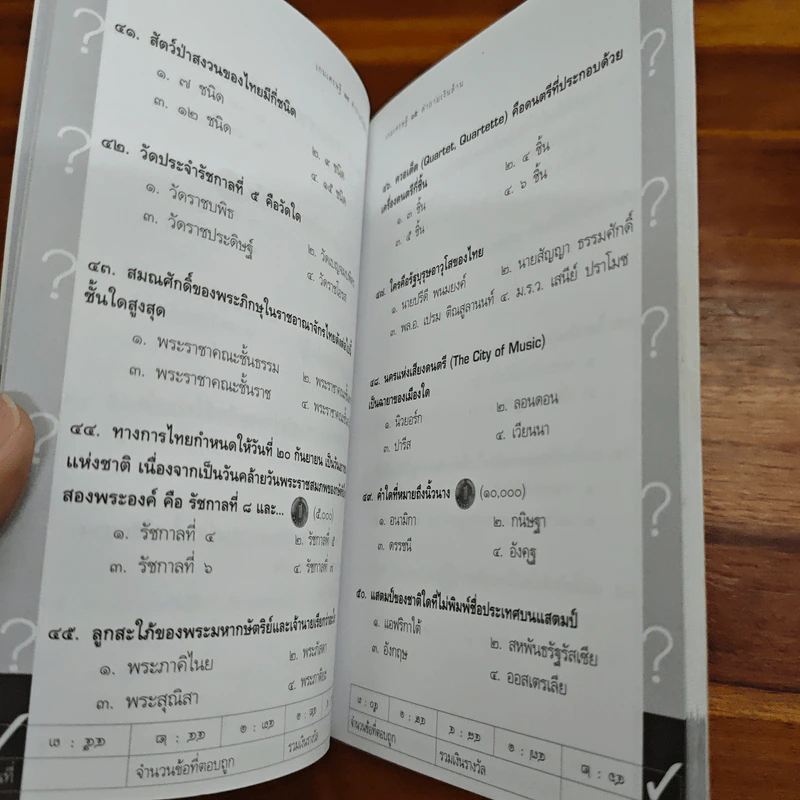 ๔๑. สัตว์ป่าสงวนของไทยมีกี่ชนิด
๑. ๗ ชนิด
๒. ๙ ชนิด
๓. ๑๒ ชนิด
๔. ๑๕ ชนิด
๔๒. วัดประจำรัชกาลที่ ๕ คือวัดใด
๑. วัดราชบพิธ
๓. วัดราชประดิษฐ์
๔๓. สมณศักดิ์ของพระภิกษุในราชอาณาจักรไทย
ชั้นใดสูงสุด
๑. พระราชาคณะชั้นธรรม
๒. พระราชาคณะชั้น
๓. พระราชาคณะชั้นราช
๔. พระราชาคณะชั้น
๔๔. ทางการไทยกำหนดให้วันที่ ๒๐ กันยายน เป็นวัน
แห่งชาติ เนื่องจากเป็นวันคล้ายวันพระราชสมภพของ
สองพระองค์ คือ รัชกาลที่ ๘ และ... (๕,๐๐๐)
๑. รัชกาลที่ ๔
๒. รัชกาลที่ ๕
๓. รัชกาลที่ ๖
๔. รัชกาลที่ ๗
๔๕. ลูกสะใภ้ของพระมหากษัตริย์และเจ้านายเรียกว่า
๑. พระภาคิไนย
๒. พระภัสดา
๓. พระสุณิสา
๔๕ : ๓
๔๔ : ๒
๔๓ : ๑
จำนวนข้อที่ตอบถูก
รวมเงินรางวัล
๔๖. ควอเต็ต (Quartet, Quartette) คือดนตรีที่ประกอบด้วย
เครื่องดนตรีกี่ชิ้น
๑. ๓ ชิ้น
๒. ๔ ชิ้น
๓. ๕ ชิ้น
๔. ๖ ชิ้น
๔๗. ใครคือรัฐบุรุษอาวุโสของไทย
๑. นายปรีดี พนมยงค์
๒. นายสัญญา ธรรมศักดิ์
๓. พล.อ. เปรม ติณสูลานนท์
๔. ม.ร.ว. เสนีย์ ปราโมช
๔๘. นครแห่งเสียงดนตรี (The City of Music)
เป็นฉายาของเมืองใด
๑. นิวยอร์ก
๒. ลอนดอน
๓. ปารีส
๔. เวียนนา
๔๙. คำใดที่หมายถึงนิ้วนาง (๑๐,๐๐๐)
๑. อนามิกา
๒. กนิษฐา
๓. ดรรชนี
๔. อังคุฐ
๕๐. แสตมป์ของชาติใดที่ไม่พิมพ์ชื่อประเทศบนแสตมป์
๑. แอฟริกาใต้
๒. สหพันธรัฐรัสเซีย
๓. อังกฤษ
๔. ออสเตรเลีย
๕๐ : ๓
๔๙ : ๑
๔๘ : ๔
๔๗ : ๑
๔๖ : ๒
จำนวนข้อที่ตอบถูก
รวมเงินรางวัล